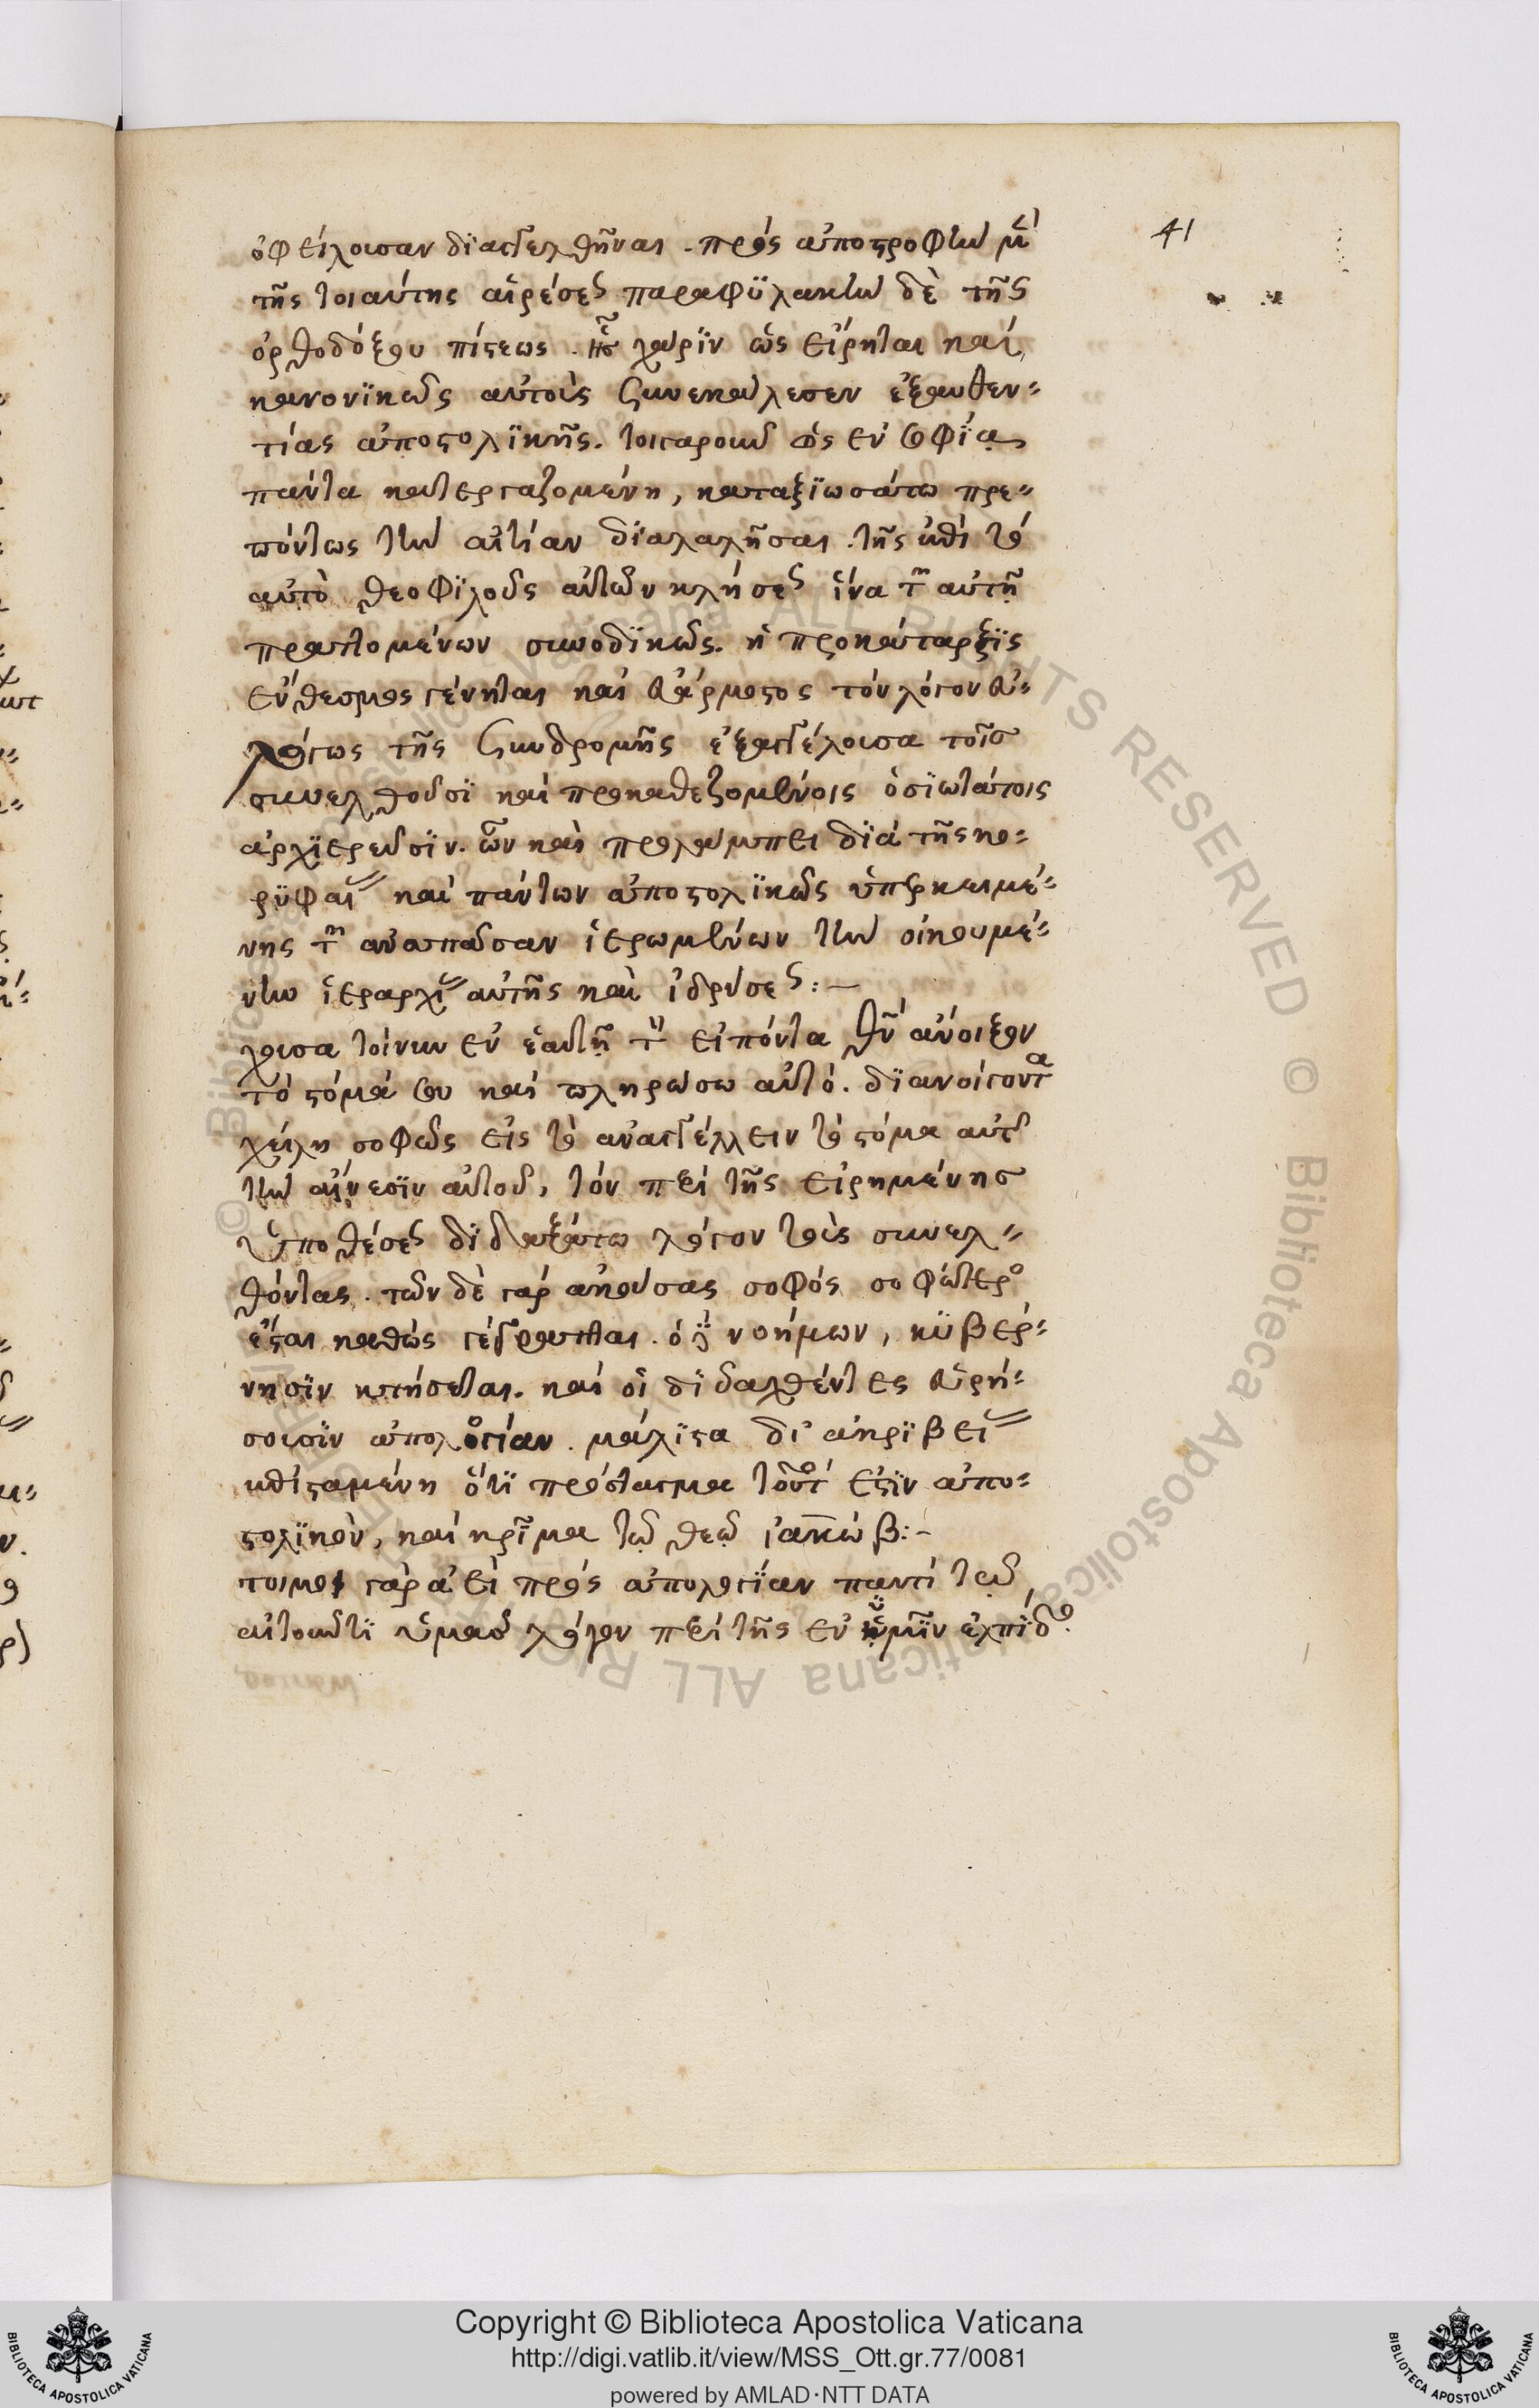 41
ὀφείλουσαν διαγγελθῆναι . πρὸς ἀποστροφὴν μὲν
τῆς τοιαύτης αἱρέσεως παραφυλακὴν δὲ τῆς
ὀρθοδόξου πίστεως . ἧς χάριν ὡς εἴρηται καὶ
κανονϊκῶς αὐτοὺς συνεκάλεσεν ἐξ αυθεν=
τίας ἀποστολϊκῆς. τοιγαροῦν ὡς ἐν σοφΐα
πάντα κατεργαζομένη, καταξϊωσάτω πρε=
πόντως τὴν αἰτίαν διαλαλῆσαι . τῆς ἐπὶ τὸ
αὐτὸ θεοφϊλοῦς αὐτῶν κλήσεως ἵνα τῶν αὐτῆ
πραττομένων συνοδϊκῶς. ἡ προκάταρξϊς
ἔνθεσμος γένηται καὶ εὐάρμοστος τὸν λόγον εὐ=
λόγως τῆς συνδρομῆς ἐξαγγέλουσα τοῖς
συνελθοῦσϊ καὶ προκαθεζομένοις ὁσϊωτάτοις
ἀρχϊερεῦσϊν. ὧν καὶ προλάμπει διὰ τῆς κο=
ρϋφαίας καὶ πάντων ἀποστολϊκῶς ὑπερκειμέ=
νης τῶν ἀνα πᾶσαν ἱερωμένων τὴν οἰκουμέ=
νην ἱεραρχίας αὐτῆς καὶ ἱδρύσεως :—
χουσα τοίνυν ἐν ἑαυτῇ τὸν εἰπόντα θν̄ ἄνοιξον
τὸ στόμά σου καὶ πληρώσω αὐτό. διανοίγοντα
χείλη σοφῶς εἰς τὸ ἀναγγέλλειν τὸ στόμα αὐτοῦ
τὴν αἴνεσϊν αὐτοῦ, τὸν περὶ τῆς εἰρημένης
ὑποθέσεως διδαξάτω λόγον τοὺς συνελ=
θόντας . τῶν δὲ γὰρ ἀκούσας σοφὸς σοφώτερος
ἔσται καθὼς γέγραπται . ὁ δὲ νοήμων, κϋβέρ=
νησϊν κτήσεται. καὶ οἱ διδαχθέντες εὑρή=
σουσϊν ἀπολογίαν . μάλϊστα δι' ἀκρϊβείας
ἐπισταμένη ὅτϊ πρόσταγμα τοῦτό ἐστϊν ἀπο=
στολϊκὸν, καὶ κρῖμα τῷ θεῷ ἰακώβ:-
τοιμοι γὰρ ἀεὶ πρὸς ἀπολογΐαν παντὶ τῷ
αἰτοῦντϊ ὑμᾶς λόγον περὶ τῆς ἐν ὑμῖν ἐλπίδος
Copyright © Biblioteca Apostolica Vaticana
http://digi.vatlib.it/view/MSS_Ott.gr.77/0081
powered by AMLAD·NTT DATA